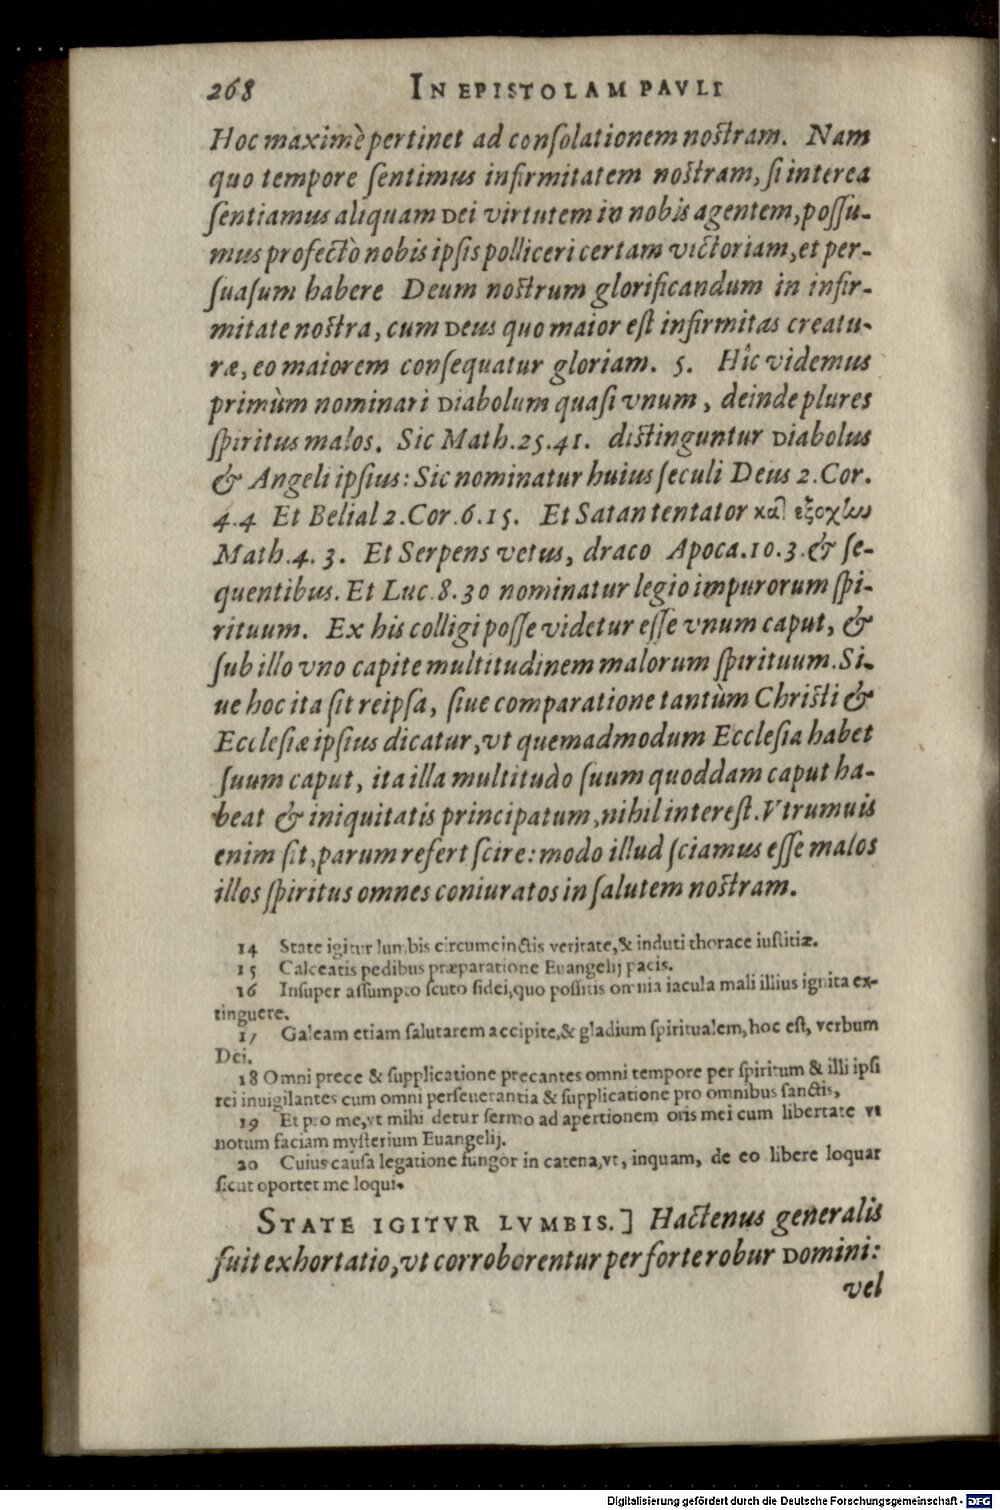 268 IN EPISTOLAM PAVLI
Hoc maximè pertinet ad conſolationem noſtram. Nam
quo tempore ſentimus infirmitatem noſtram, ſi interea
ſentiamus aliquam Dei virtutem in nobis agentem, poſſu-
mus profectò nobis ipſis polliceri certam victoriam, et per-
ſuaſum habere Deum noſtrum glorificandum in infir-
mitate noſtra, cum Deus quo maior eſt infirmitas creatu-
ræ, eo maiorem conſequatur gloriam. 5. Hîc videmus
primùm nominari Diabolum quaſi vnum, deinde plures
ſpiritus malos. Sic Math.25.41. diſtinguntur Diabolus
& Angeli ipſius: Sic nominatur huius ſeculi Deus 2.Cor.
4.4 Et Belial 2.Cor.6.15. Et Satan tentator κατ᾽ ἐξοχὴν
Math.4.3. Et Serpens vetus, draco Apoca.10.3.& ſe-
quentibus. Et Luc.8.30 nominatur legio impurorum ſpi-
rituum. Ex his colligi poſſe videtur eſſe vnum caput, &
ſub illo vno capite multitudinem malorum ſpirituum. Si-
ue hoc ita ſit reipſa, ſiue comparatione tantùm Chriſti &
Eccleſiæ ipſius dicatur, vt quemadmodum Eccleſia habet
ſuum caput, ita illa multitudo ſuum quoddam caput ha-
beat & iniquitatis principatum, nihil intereſt. Vtrumuis
enim ſit, parum refert ſcire: modo illud ſciamus eſſe malos
illos ſpiritus omnes coniuratos in ſalutem noſtram.
14 State igitur lumbis circumcinctis veritate, & induti thorace iuſtitiæ.
15 Calceatis pedibus præparatione Euangelij pacis.
16 Inſuper aſſumpto ſcuto fidei, quo poſſitis omnia iacula mali illius ignita ex-
tinguere.
17 Galeam etiam ſalutarem accipite, & gladium ſpiritualem, hoc eſt, verbum
Dei.
18 Omni prece & ſupplicatione precantes omni tempore per ſpiritum & illi ipſi
rei inuigilantes cum omni perſeuerantia & ſupplicatione pro omnibus ſanctis,
19 Et pro me, vt mihi detur ſermo ad apertionem oris mei cum libertate vt
notum faciam myſterium Euangelij.
20 Cuius cauſa legatione fungor in catena, vt, inquam, de eo libere loquar
ſicut oportet me loqui.
STATE IGITVR LVMBIS.] Hactenus generalis
fuit exhortatio, vt corroborentur per forte robur Domini:
vel
Digitalisierung gefördert durch die Deutsche Forschungsgemeinschaft - DFG